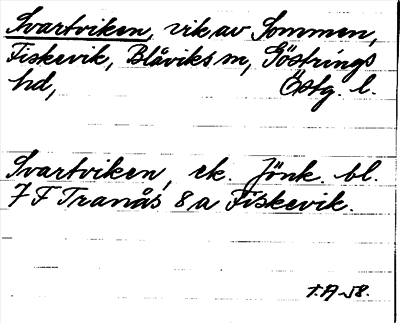 Svartviken, vik av Sommen,
Fiskevik, Blåviks sn, Göstrings
hd, Östg. l.
Svartviken, ek. Jönk. bl.
7 F Tranås 8 a Fiskevik.
†.A-58.